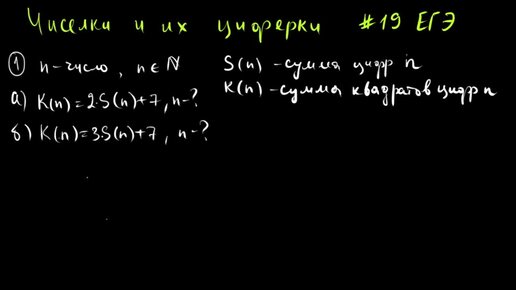 Чиселки и их циферки #19 ЕГЭ
① n-число, n∈ℕ S(n) - сумма цифр n
K(n) - сумма квадратов цифр n
а) K(n)=2·S(n)+7, n-?
б) K(n)=3S(n)+7, n-?